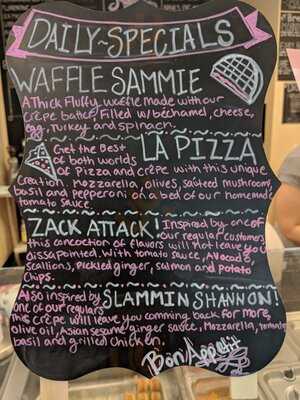 DAILY~SPECIALS
WAFFLE SAMMIE
A Thick Fluffy waffle made with our
crêpe batter, Filled w/béchamel, cheese,
egg, Turkey and spinach.
Get the Best
of both worlds
LA PIZZA
of Pizza and crêpe with this unique
creation. Mozzarella, olives, sauteed mushroom,
basil and pepperoni on a bed of our homemade
tomato sauce.
ZACK ATTACK!
Inspired by one of
our regular customers
this concoction of flavors will not leave you
dissapointed. With tomato sauce, Avocado
scallions, pickled ginger, salmon and potato
chips.
Also inspired by
one of our regulars
SLAMMIN SHANNON!
This crêpe will leave you comming back for more,
olive oil, Asian sesame ginger sauce, Mozzarella, tomato
basil and grilled chicken.
Bon Appetit